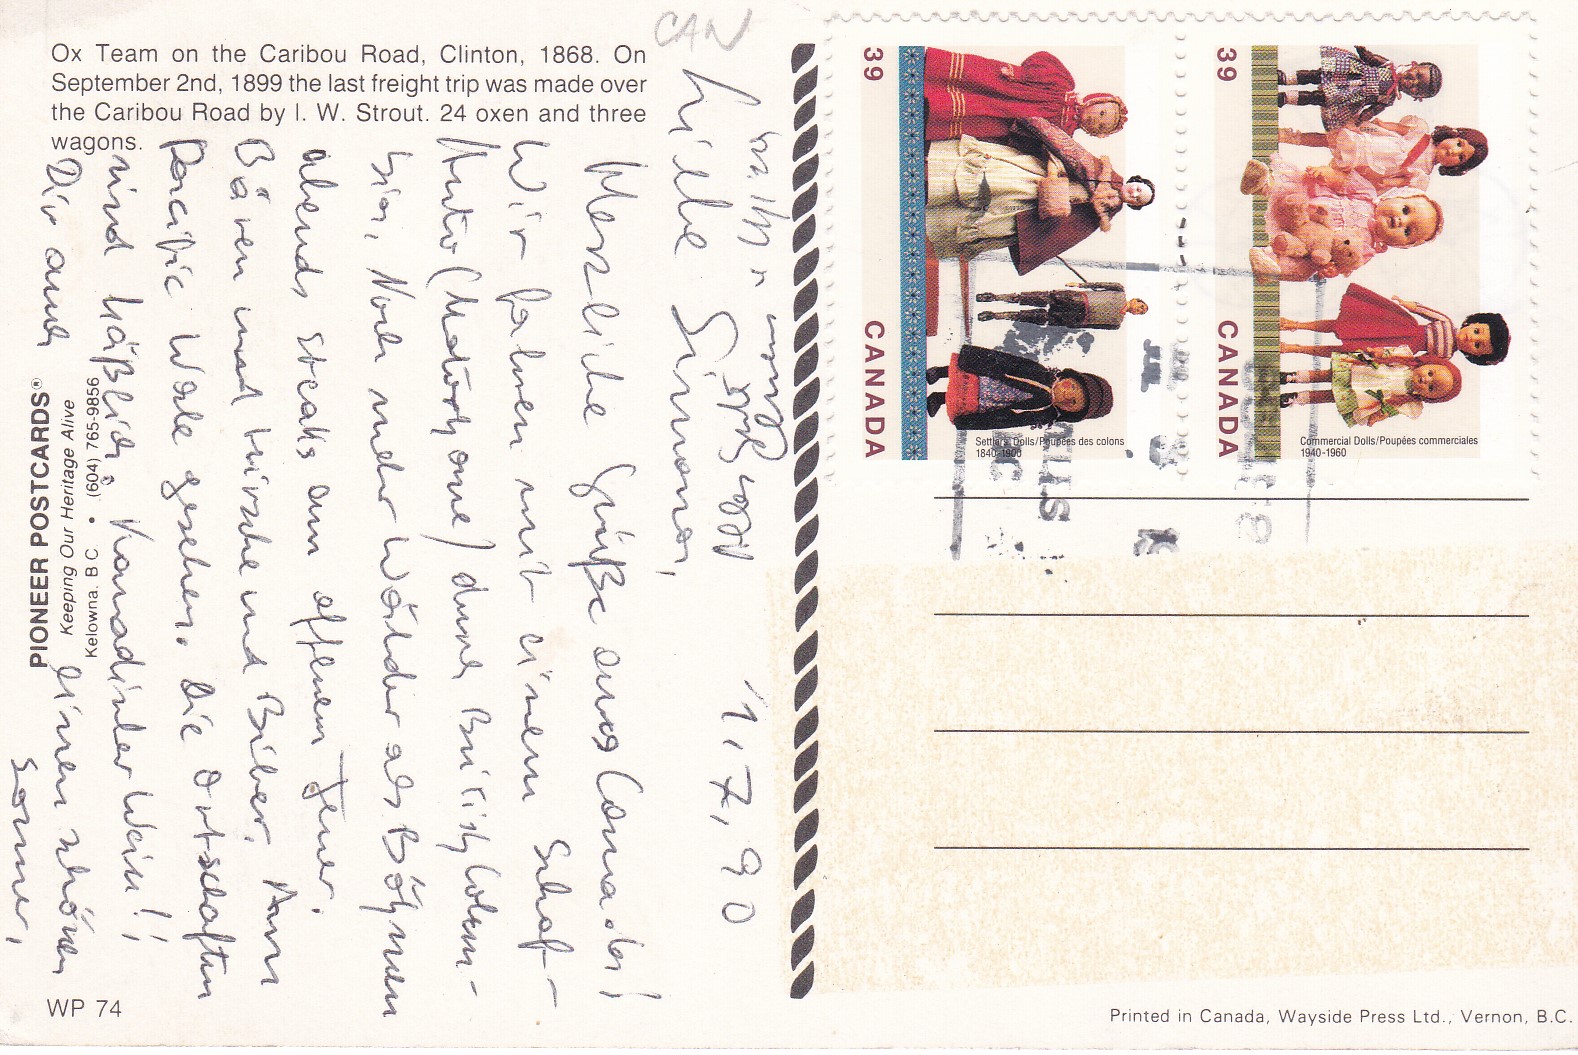 CAN
Ox Team on the Caribou Road, Clinton, 1868. On
September 2nd, 1899 the last freight trip was made over
the Caribou Road by I. W. Strout. 24 oxen and three
wagons.
1.7.90
Liebe Simona,
Herzliche Grüße aus Canada!
Wir fahren mit einem Schlaf-
Auto (Motorhome) durch British Colum-
bia, Noch mehr Wälder als Böhmen
abends steaks am offenen Feuer.
Bären und Hirsche und Biber, Am
Pacific Wale gesehen. Die Ortschaften
sind häßlich. Kanadischer Wein!!
Dir auch einen schönen
Sommer,
PIONEER POSTCARDS®
Keeping Our Heritage Alive
Kelowna, B C • (604) 765-9856
WP 74
39
CANADA
Settlers' Dolls/Poupées des colons
1840-1900
39
CANADA
Commercial Dolls/Poupées commerciales
1940-1960
Printed in Canada, Wayside Press Ltd., Vernon, B.C.